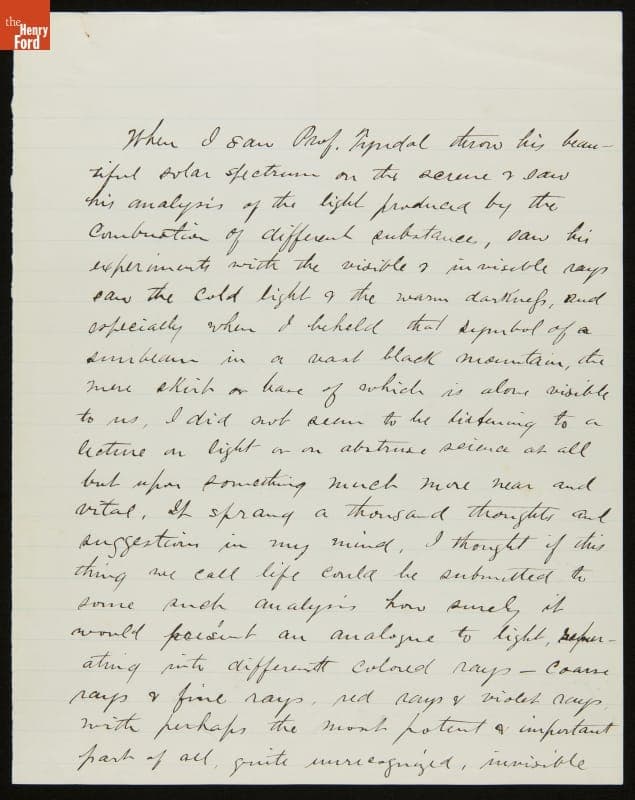 the
Henry
Ford
When I saw Prof. Tyndal throw his beau-
tiful solar spectrum on the screne & saw
his analysis of the light produced by the
Combustion of different substance, saw his
experiments with the visible & invisible rays
saw the cold light & the warm darkness, and
especially when I beheld that symbol of a
sunbeam in a vast black mountain, the
mere skirt or base of which is alone visible
to us, I did not seem to be listening to a
lecture on light or on abstruse science at all
but upon something much more near and
vital. It sprang a thousand thoughts and
suggestions in my mind. I thought if this
thing we call life could be submitted to
some such analysis how surely it
would present an analogue to light, separ-
ating into different colored rays — coarse
rays & fine rays, red rays & violet rays,
with perhaps the most potent & important
part of all, quite unrecognized, invisible